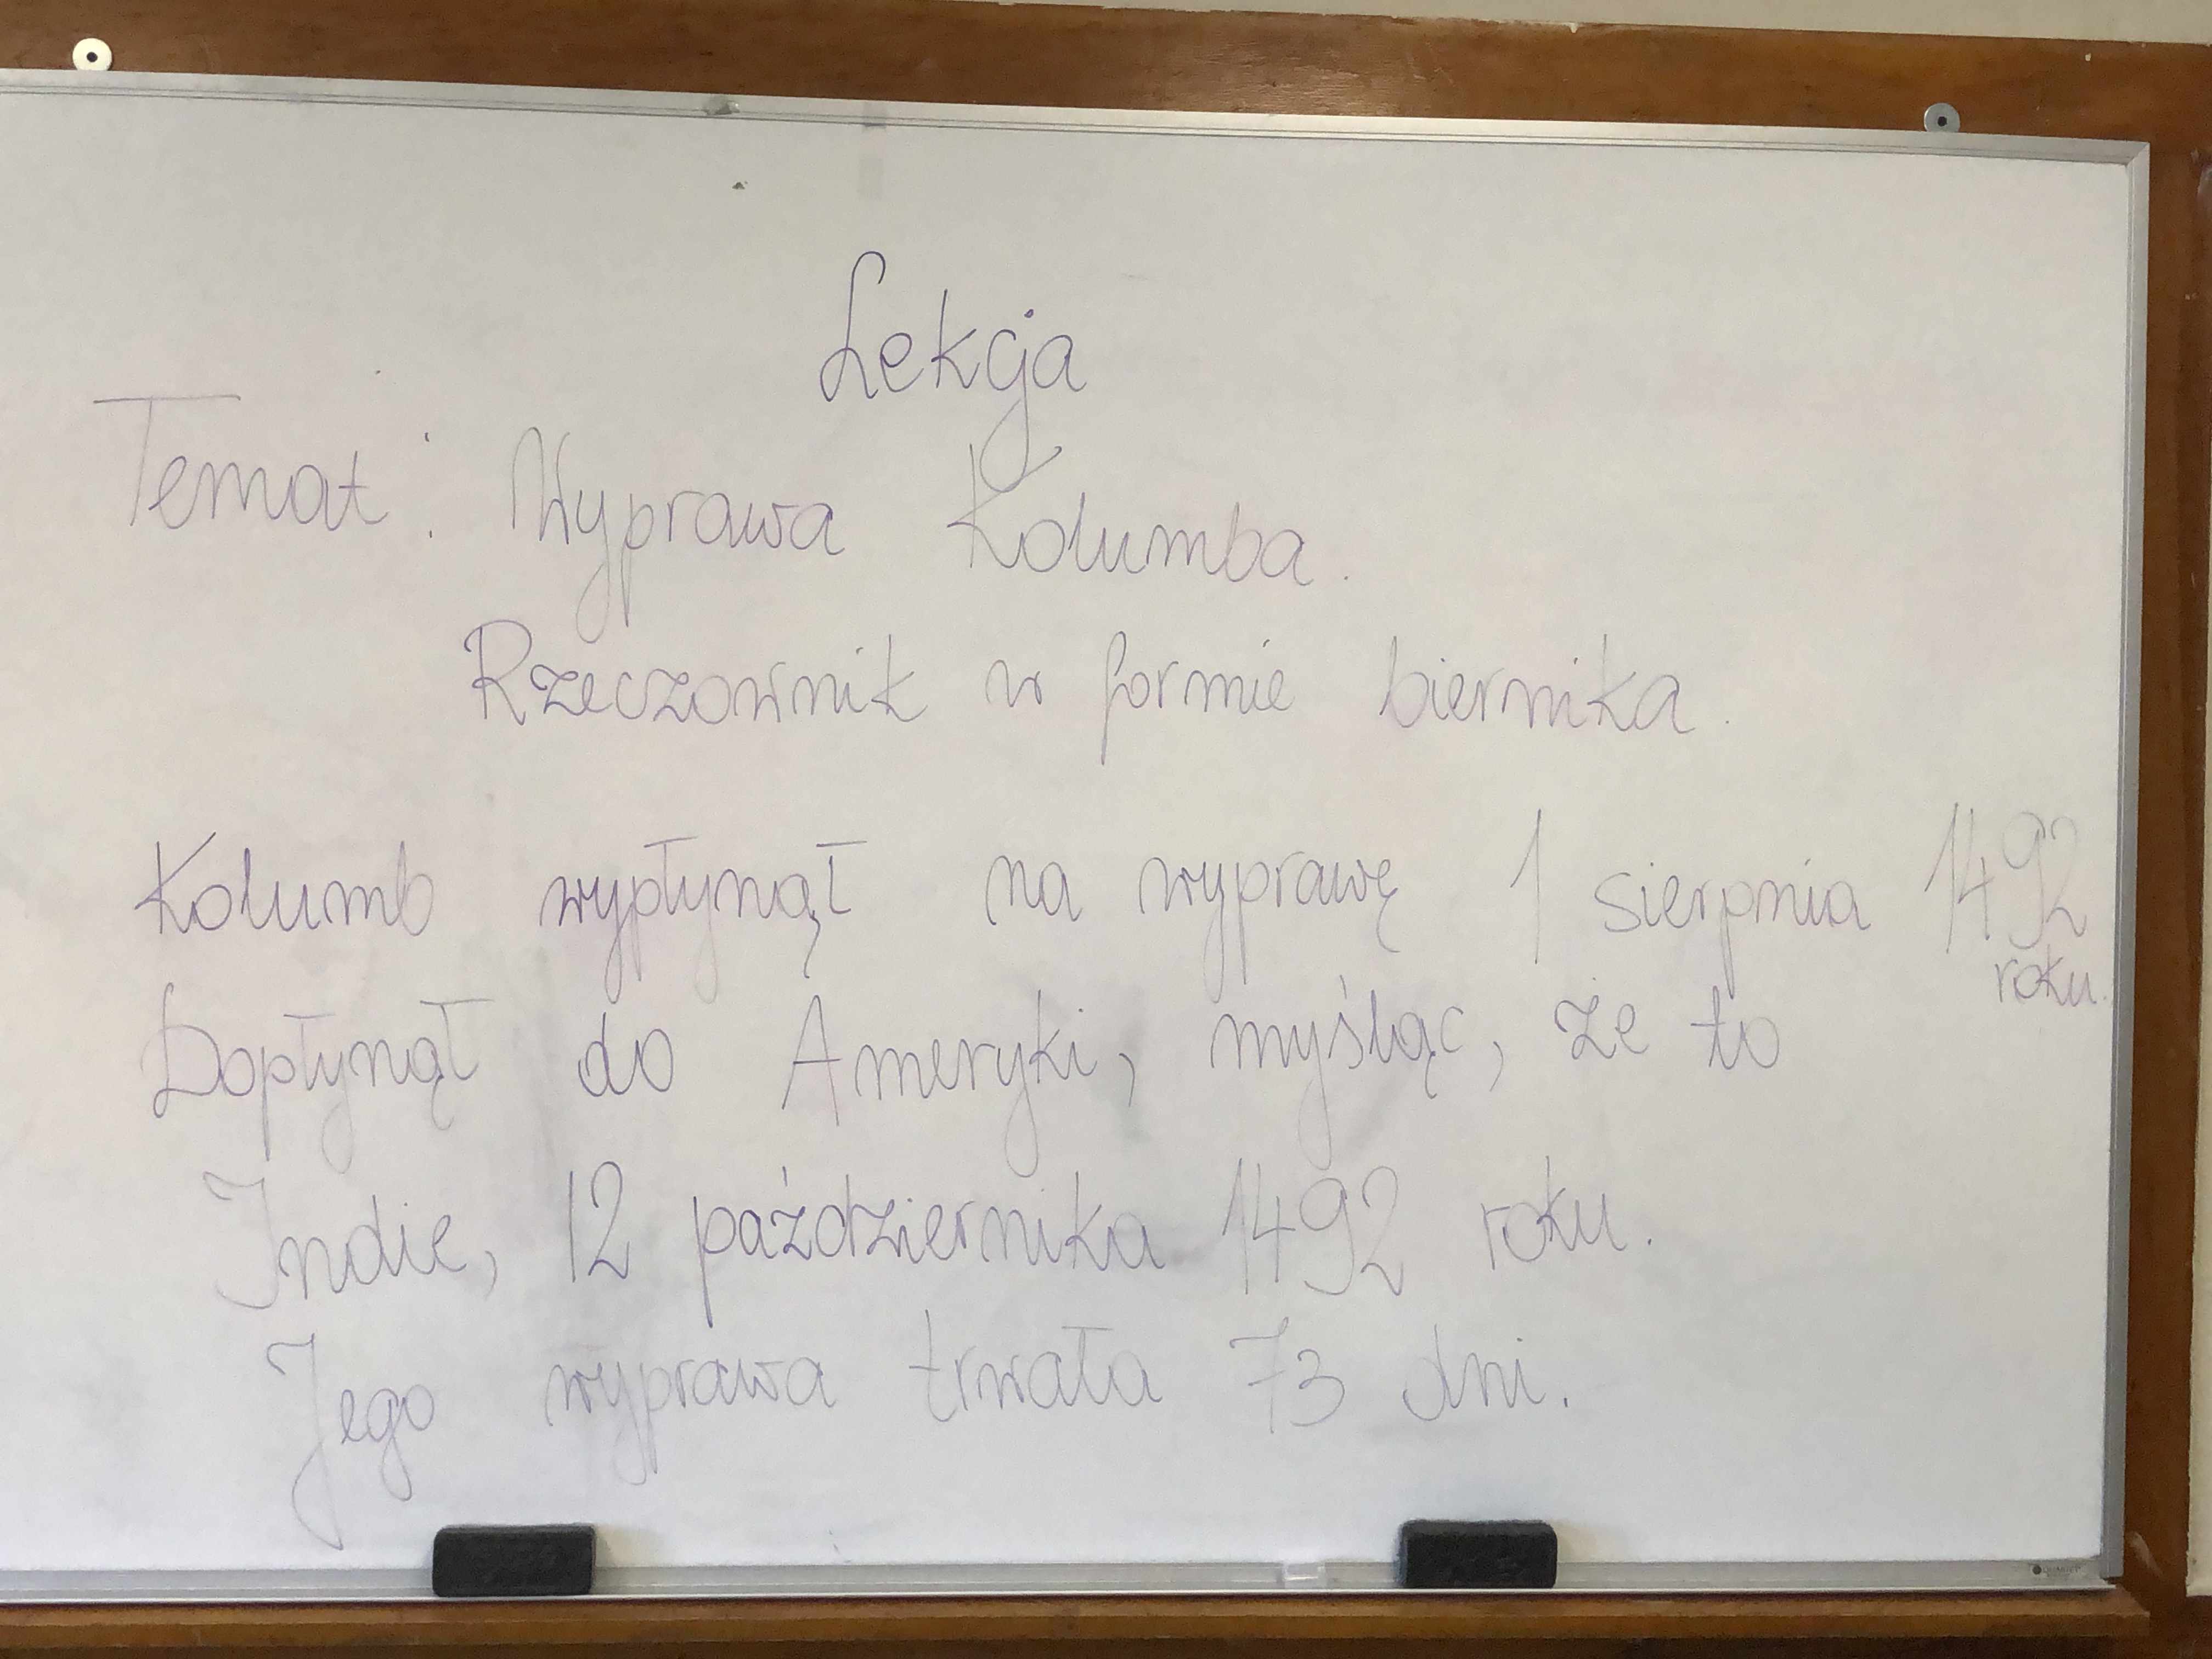 Lekcja
Temat: Wyprawa Kolumba.
Rzeczownik w formie biernika.
Kolumb wypłynął na wyprawę 1 sierpnia 1492
roku.
Dopłynął do Ameryki, myśląc, że to
Indie, 12 października 1492 roku.
Jego wyprawa trwała 73 dni.